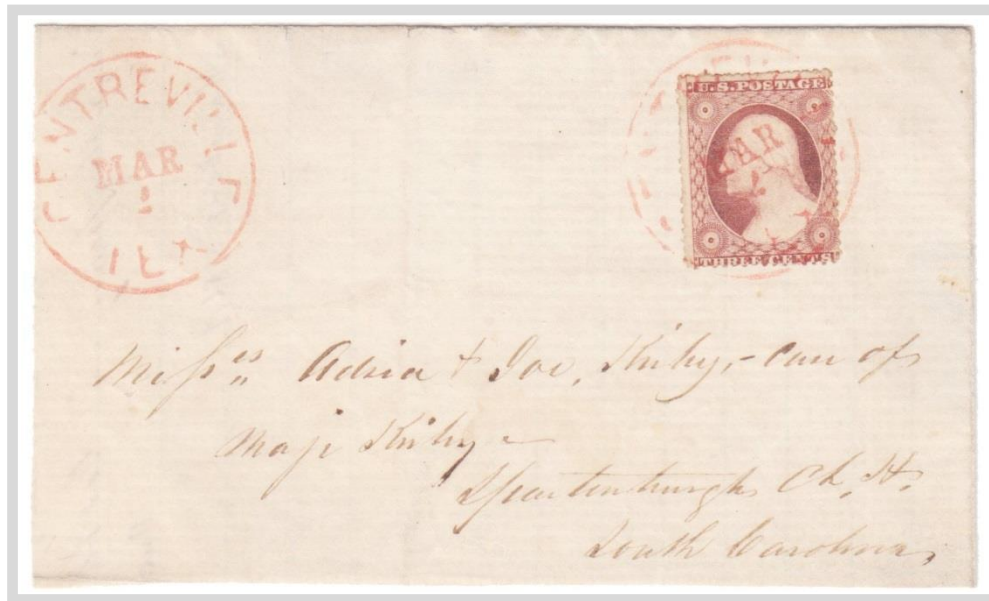 CENTREVILLE
MAR
TEX
U.S. POSTAGE
MAR
THREE CENTS
Misses Adria & Joe, Kirby, - Care of
Maj Kirby
Spartenburgh Ch, H,
South Carolina,